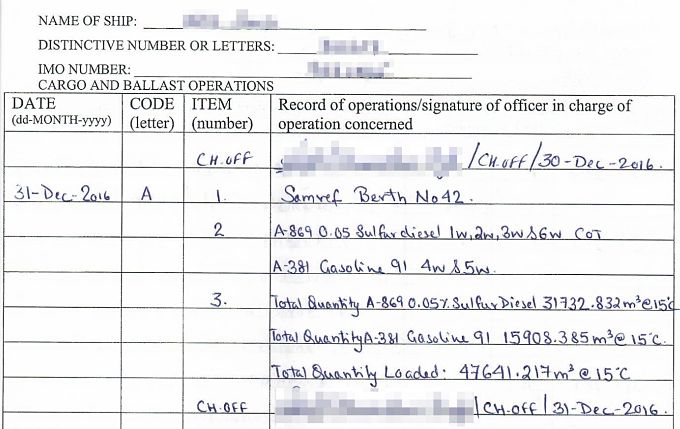 NAME OF SHIP:
DISTINCTIVE NUMBER OR LETTERS:
IMO NUMBER:
CARGO AND BALLAST OPERATIONS
DATE (dd-MONTH-yyyy) CODE (letter) ITEM (number) Record of operations/signature of officer in charge of operation concerned
CH.OFF /CH.OFF/30-Dec-2016.
31-Dec-2016 A 1. Samref Berth No 42.
2 A-869 0.05 Sulfur diesel 1w, 2w, 3w & 6w COT
A-381 Gasoline 91 4w & 5w.
3. Total Quantity A-869 0.05% Sulfur Diesel 31732.832m³@15°c
Total Quantity A-381 Gasoline 91 15908.385m³@ 15°c.
Total Quantity Loaded: 47641.217m³@15°C
CH.OFF /CH.OFF/31-Dec-2016.